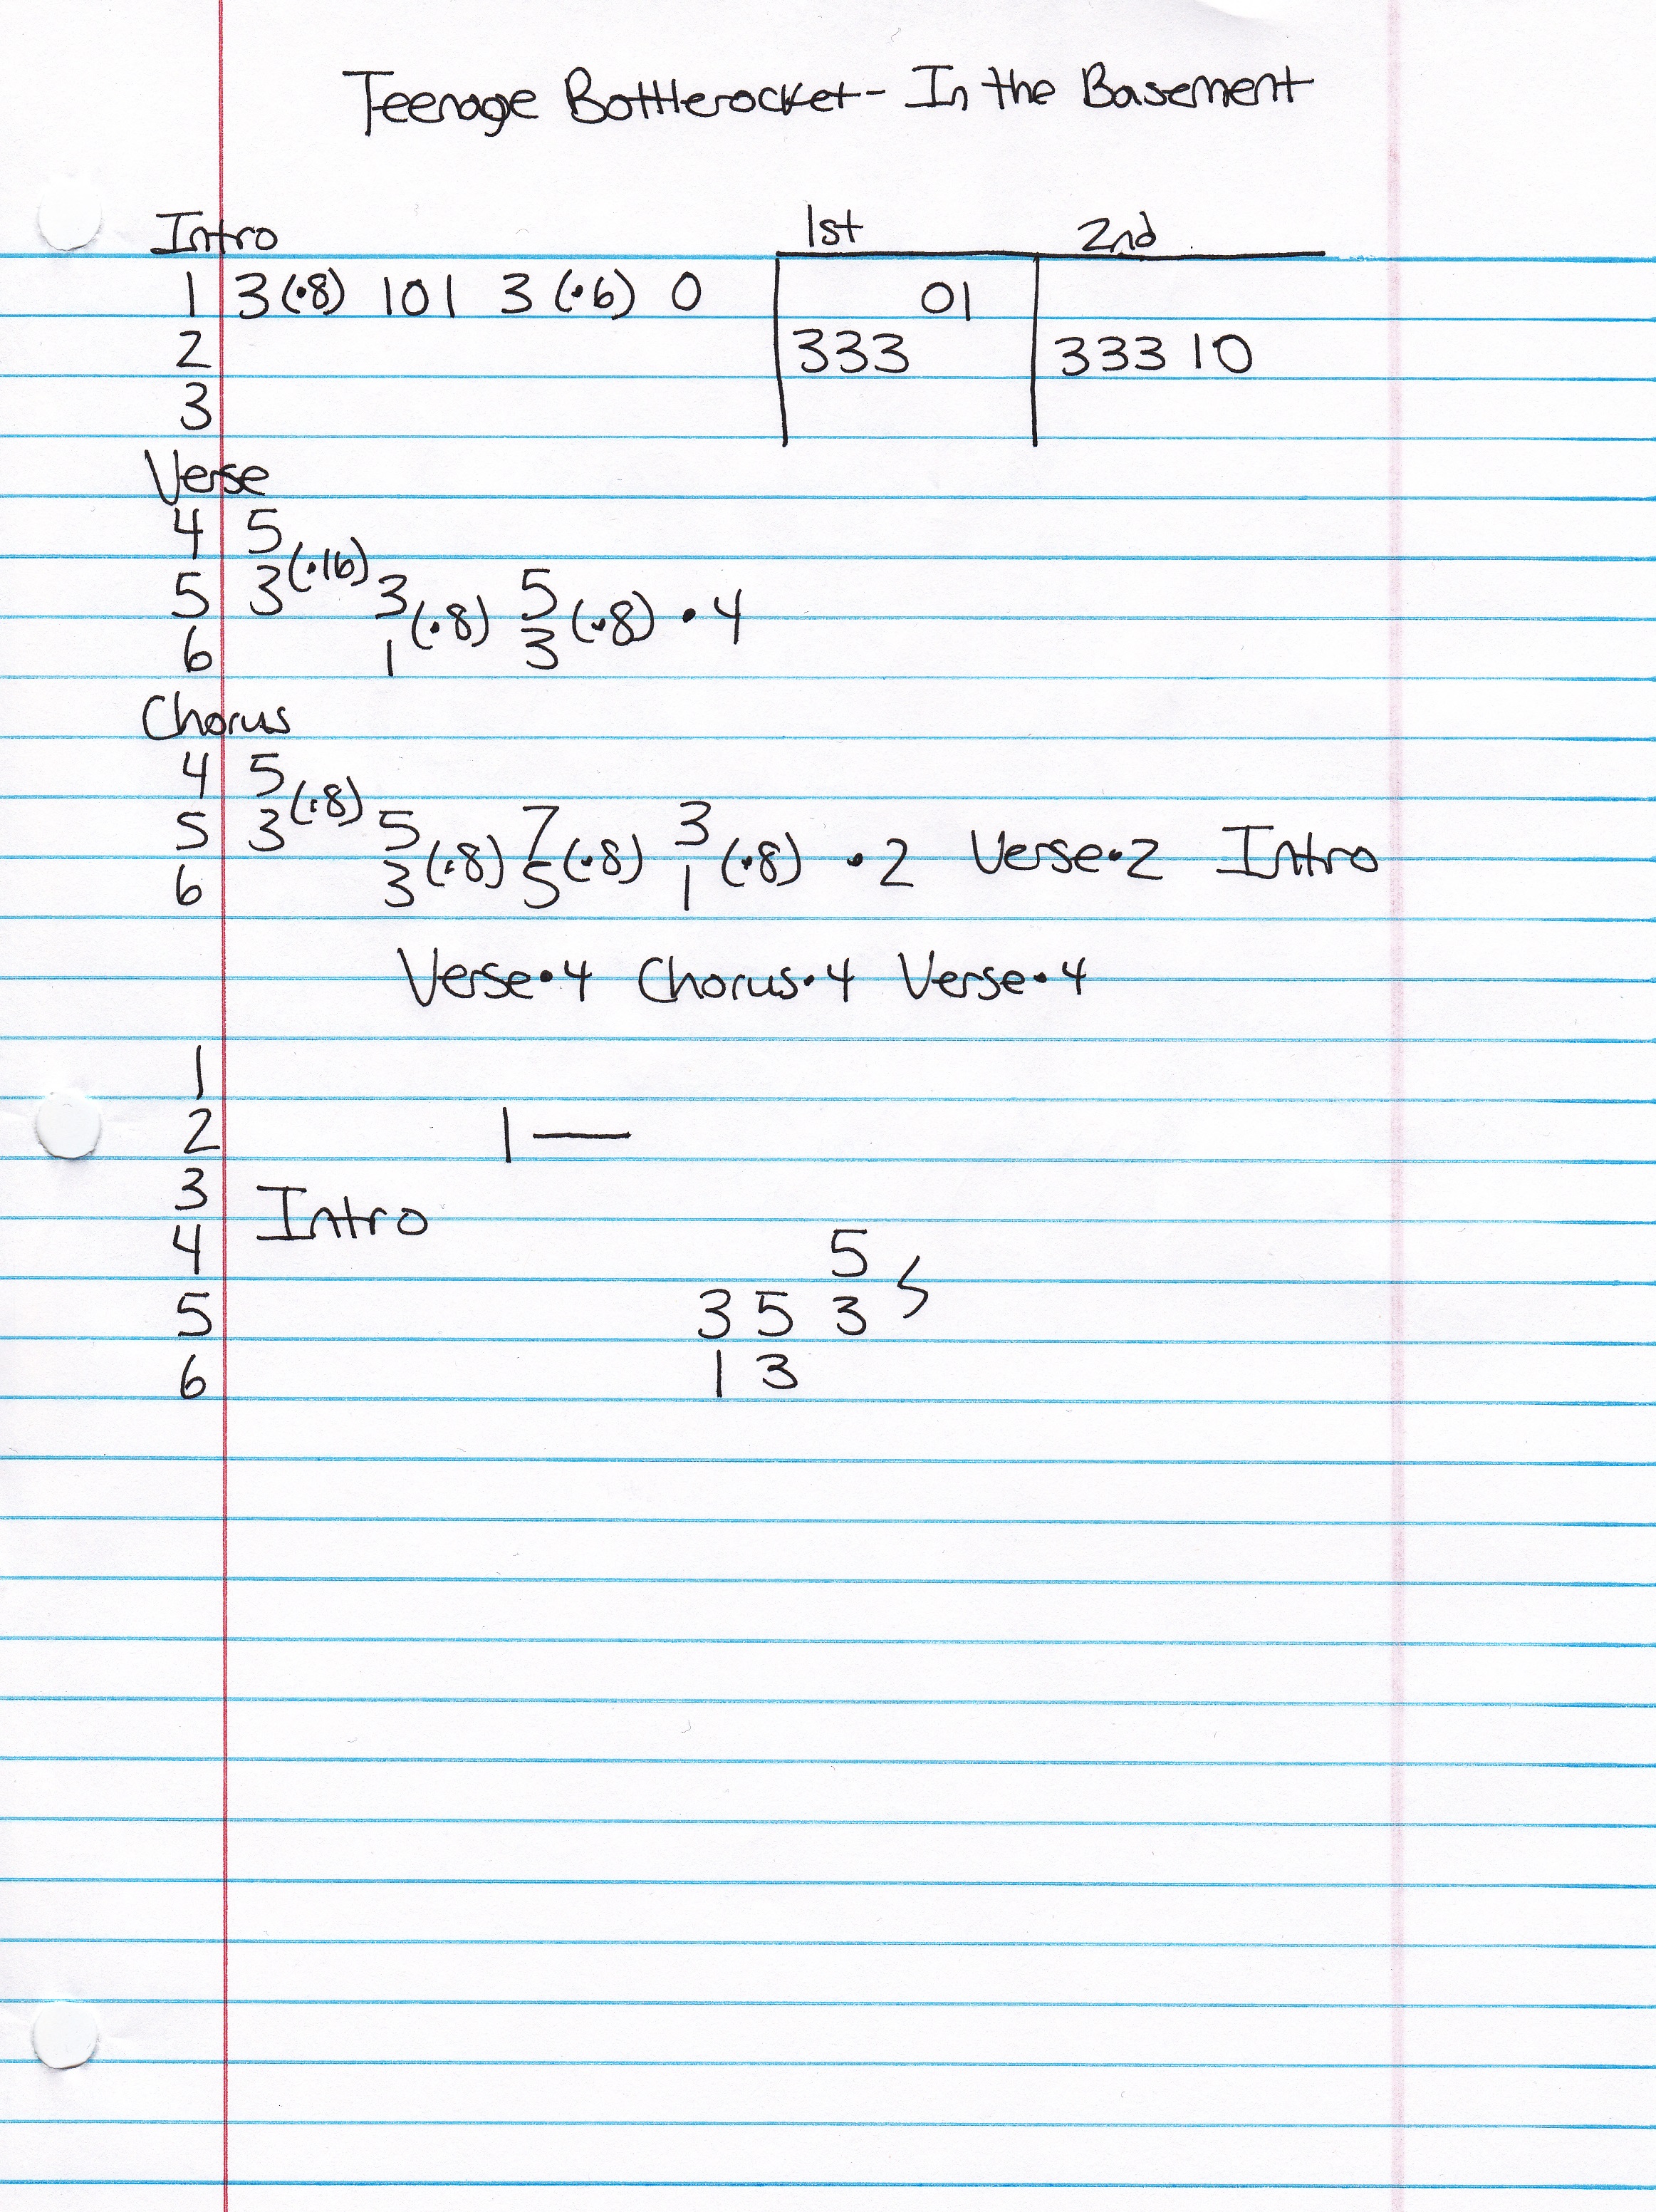 Teenage Bottlerocket - In the Basement
Intro 1st 2nd
1 3(·8) 101 3(·6) 0 01
2 333 333 10
3
Verse
4 5
5 3(·16) 3 5
6 1(·8) 3(·8) ·4
Chorus
4 5
5 3(·8) 5 7 3
6 3(·8) 5(·8) 1(·8) ·2 Verse·2 Intro
Verse·4 Chorus·4 Verse·4
1
2 1—
3 Intro
4 5
5 3 5 3
6 1 3